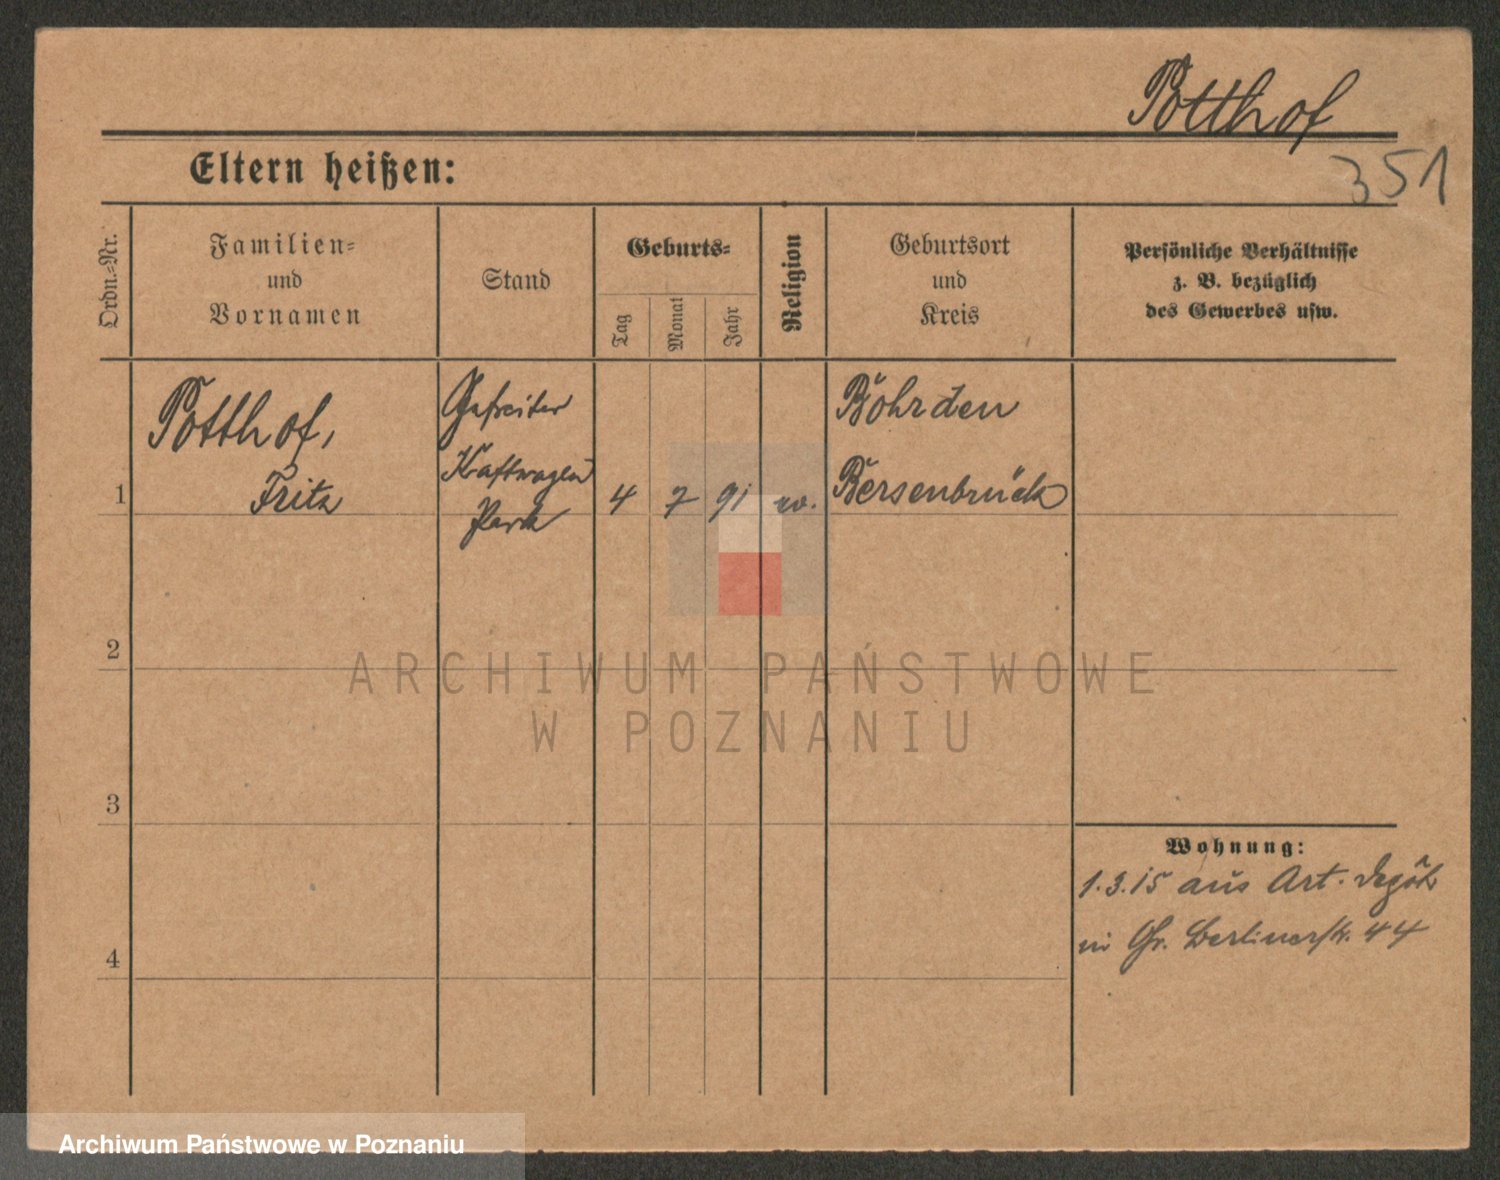 Potthof
351
Eltern heißen:
Ordn.-Nr.
Familien-
und
Vornamen
Stand
Geburts-
Tag
Monat
Jahr
Religion
Geburtsort
und
Kreis
Persönliche Verhältnisse
z. B. bezüglich
des Gewerbes usw.
1
Potthof,
Fritz
Gefreiter
Kraftwagen
Park
4 7 91 ev.
Böhrden
Bersenbrück
2
3
4
Wohnung:
1.3.15 aus Art. Depôt
in Gr. Berlinerstr. 44
ARCHIWUM PAŃSTWOWE
W POZNANIU
Archiwum Państwowe w Poznaniu